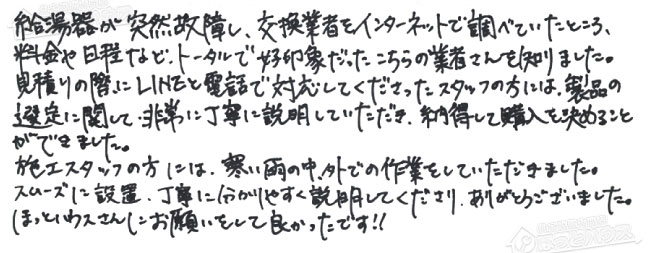 給湯器が突然故障し、交換業者をインターネットで調べていたところ、
料金や日程など、トータルで好印象だったこちらの業者さんを知りました。
見積りの際にLINEと電話で対応してくださったスタッフの方には、製品の
選定に関して非常に丁寧に説明していただき、納得して購入を決めること
ができました。
施工スタッフの方には、寒い雨の中、外での作業をしていただきました。
スムーズに設置、丁寧に分かりやすく説明してくださり、ありがとうございました。
ほっとハウスさんにお願いをして良かったです!!